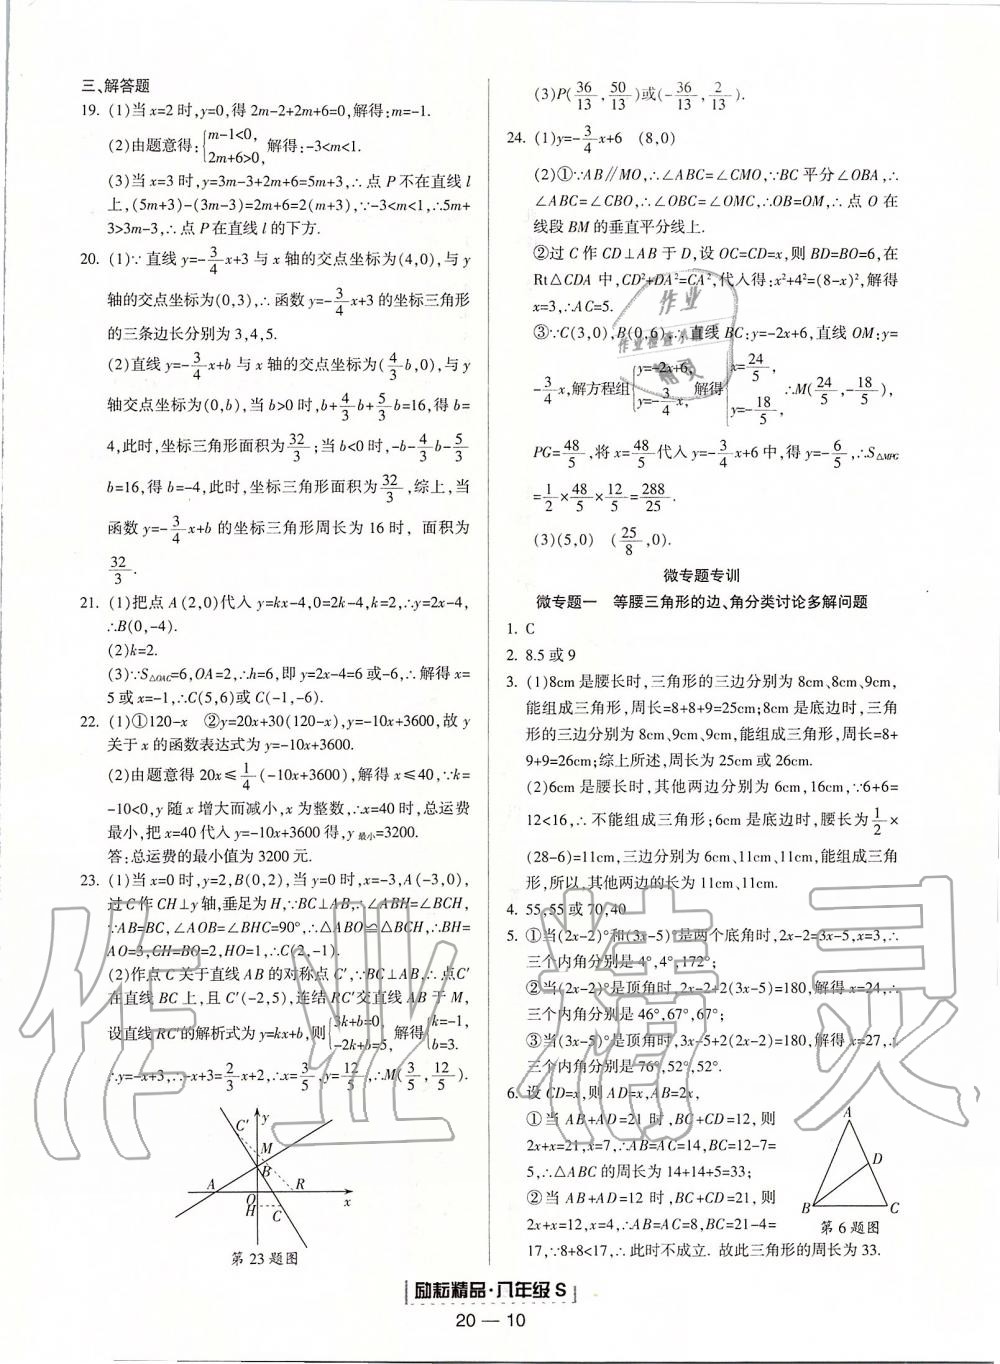 三、解答题
19. (1)当x=2时,y=0,得2m-2+2m+6=0,解得:m=-1.
(2)由题意得:{m-1<0, 2m+6>0, 解得:-3<m<1.
(3)当x=3时,y=3m-3+2m+6=5m+3,∴点P不在直线l
上,(5m+3)-(3m-3)=2m+6=2(m+3),∵-3<m<1,∴5m+
3>3m-3,∴点P在直线l的下方.
20. (1)∵直线y=-3/4x+3与x轴的交点坐标为(4,0),与y
轴的交点坐标为(0,3),∴函数y=-3/4x+3的坐标三角形
的三条边长分别为3,4,5.
(2)直线y=-3/4x+b与x轴的交点坐标为(4/3b,0),与y
轴交点坐标为(0,b),当b>0时,b+4/3b+5/3b=16,得b=
4,此时,坐标三角形面积为32/3;当b<0时,-b-4/3b-5/3
b=16,得b=-4,此时,坐标三角形面积为32/3,综上,当
函数y=-3/4x+b的坐标三角形周长为16时,面积为
32/3.
21. (1)把点A(2,0)代入y=kx-4,0=2k-4,k=2,∴y=2x-4,
∴B(0,-4).
(2)k=2.
(3)∵S△OAC=6,OA=2,∴h=6,即y=2x-4=6或-6,∴解得x=
5或x=-1,∴C(5,6)或C(-1,-6).
22. (1)①120-x ②y=20x+30(120-x),y=-10x+3600,故y
关于x的函数表达式为y=-10x+3600.
(2)由题意得20x≤1/4(-10x+3600),解得x≤40,∵k=
-10<0,y随x增大而减小,x为整数,∴x=40时,总运费
最小,把x=40代入y=-10x+3600得,y最小=3200.
答:总运费的最小值为3200元.
23. (1)当x=0时,y=2,B(0,2),当y=0时,x=-3,A(-3,0),
过C作CH⊥y轴,垂足为H,∵BC⊥AB,∴∠ABH=∠BCH,
∵AB=BC,∠AOB=∠BHC=90°,∴△ABO≌△BCH,∴BH=
AO=3,CH=BO=2,HO=1,∴C(2,-1).
(2)作点C关于直线AB的对称点C′,∵BC⊥AB,∴点C′
在直线BC上,且C′(-2,5),连结RC′交直线AB于M,
设直线RC′的解析式为y=kx+b,则{3k+b=0, -2k+b=5, 解得{k=-1, b=3.
∴y=-x+3,∴-x+3=2/3x+2,∴x=3/5,y=12/5,∴M(3/5,12/5).
C′
y
M
B
A
O
R
x
H
C
第23题图
(3)P(36/13,50/13)或(-36/13,2/13).
24. (1)y=-3/4x+6 (8,0)
(2)①∵AB∥MO,∴∠ABC=∠CMO,∵BC平分∠OBA,∴
∠ABC=∠CBO,∴∠OBC=∠OMC,∴OB=OM,∴点O在
线段BM的垂直平分线上.
②过C作CD⊥AB于D,设OC=CD=x,则BD=BO=6,在
Rt△CDA中,CD²+DA²=CA²,代入得:x²+4²=(8-x)²,解得
x=3,∴AC=5.
③∵C(3,0),B(0,6),∴直线BC:y=-2x+6,直线OM:y=
-3/4x,解方程组{y=-2x+6, y=-3/4x, 解得{x=24/5, y=-18/5, ∴M(24/5,-18/5),
PG=48/5,将x=48/5代入y=-3/4x+6中,得y=-6/5,∴S△MPG
=1/2×48/5×12/5=288/25.
(3)(5,0) (25/8,0).
微专题专训
微专题一 等腰三角形的边、角分类讨论多解问题
1. C
2. 8.5或9
3. (1)8cm是腰长时,三角形的三边分别为8cm、8cm、9cm,
能组成三角形,周长=8+8+9=25cm;8cm是底边时,三角
形的三边分别为8cm、9cm、9cm,能组成三角形,周长=8+
9+9=26cm;综上所述,周长为25cm或26cm.
(2)6cm是腰长时,其他两边分别为6cm,16cm,∵6+6=
12<16,∴不能组成三角形;6cm是底边时,腰长为1/2×
(28-6)=11cm,三边分别为6cm、11cm、11cm,能组成三角
形,所以,其他两边的长为11cm、11cm.
4. 55,55或70,40
5. ①当(2x-2)°和(3x-5)°是两个底角时,2x-2=3x-5,x=3,∴
三个内角分别是4°,4°,172°;
②当(2x-2)°是顶角时,2x-2+2(3x-5)=180,解得x=24,∴
三个内角分别是46°,67°,67°;
③当(3x-5)°是顶角时,3x-5+2(2x-2)=180,解得x=27,∴
三个内角分别是76°,52°,52°.
6. 设CD=x,则AD=x,AB=2x,
①当AB+AD=21时,BC+CD=12,则
2x+x=21,x=7,∴AB=AC=14,BC=12-7=
5,∴△ABC的周长为14+14+5=33;
②当AB+AD=12时,BC+CD=21,则
2x+x=12,x=4,∴AB=AC=8,BC=21-4=
17,∵8+8<17,∴此时不成立.故此三角形的周长为33.
A
D
B
C
第6题图
作业
作业检查小
精灵
作业精灵
励耘精品·八年级S
20—10